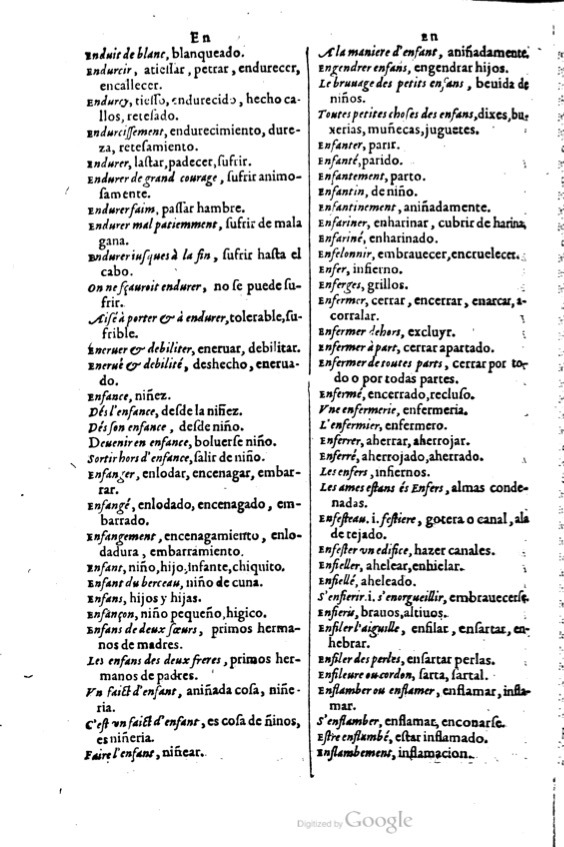 En
Enduit de blanc, blanqueado.
Endurcir, atiessar, petrar, endurecer,
encallecer.
Endurcy, tiesso, endurecido, hecho ca-
llos, retesado.
Endurcissement, endurecimiento, dure-
za, retesamiento.
Endurer, lastar, padecer, sufrir.
Endurer de grand courage, sufrir animo-
samente.
Endurer faim, passar hambre.
Endurer mal patiemment, sufrir de mala
gana.
Endurer iusques à la fin, sufrir hasta el
cabo.
On ne sçauroit endurer, no se puede su-
frir.
Aisé à porter & à endurer, tolerable, su-
frible.
Encruer & debiliter, eneruar, debilitar.
Enerué & debilité, deshecho, enerua-
do.
Enfance, niñez.
Dés l'enfance, desde la niñez.
Dés son enfance, desde niño.
Deuenir en enfance, boluerse niño.
Sortir hors d'enfance, salir de niño.
Enfanger, enlodar, encenagar, embar-
rar.
Enfangé, enlodado, encenagado, em-
barrado.
Enfangement, encenagamiento, enlo-
dadura, embarramiento.
Enfant, niño, hijo, infante, chiquito.
Enfant du berceau, niño de cuna.
Enfans, hijos y hijas.
Enfançon, niño pequeño, higico.
Enfans de deux sœurs, primos herma-
nos de madres.
Les enfans des deux freres, primos her-
manos de padres.
Vn faict d'enfant, aniñada cosa, niñe-
ria.
C'est vn faict d'enfant, es cosa de ñinos,
es niñeria.
Faire l'enfant, niñear.
En
A la maniere d'enfant, aniñadamente.
Engendrer enfans, engendrar hijos.
Le bruuage des petits enfans, beuida de
niños.
Toutes petites choses des enfans, dixes, bu-
xerias, muñecas, juguetes.
Enfanter, parir.
Enfanté, parido.
Enfantement, parto.
Enfantin, de niño.
Enfantinement, aniñadamente.
Enfariner, enharinar, cubrir de harina,
Enfariné, enharinado.
Enfelonnir, embrauecer, encruelecer.
Enfer, infierno.
Enferges, grillos.
Enfermer, cerrar, encerrar, enarcar, a-
corralar.
Enfermer dehors, excluyr.
Enfermer à part, cerrar apartado.
Enfermer de toutes parts, cerrar por to-
do o por todas partes.
Enfermé, encerrado, recluso.
Vne enfermerie, enfermeria.
L'enfermier, enfermero.
Enferrer, aherrar, aherrojar.
Enferré, aherrojado, aherrado.
Les enfers, infiernos.
Les ames estans és Enfers, almas conde-
nadas.
Enfesteau. i. festiere, gotera o canal, ala
de tejado.
Enfester vn edifice, hazer canales.
Enfieller, ahelear, enhielar.
Enfiellé, aheleado.
S'enfierir. i. s'enorgueillir, embrauecerse.
Enfieriz, brauos, altiuos.
Enfiler l'aiguille, enfilar, ensartar, en-
hebrar.
Enfiler des perles, ensartar perlas.
Enfileure ou cordon, sarta, sartal.
Enflamber ou enflamer, enflamar, infla-
mar.
S'enflamber, enflamar, enconarse.
Estre enflambé, estar inflamado.
Enflambement, inflamacion.
Digitized by Google